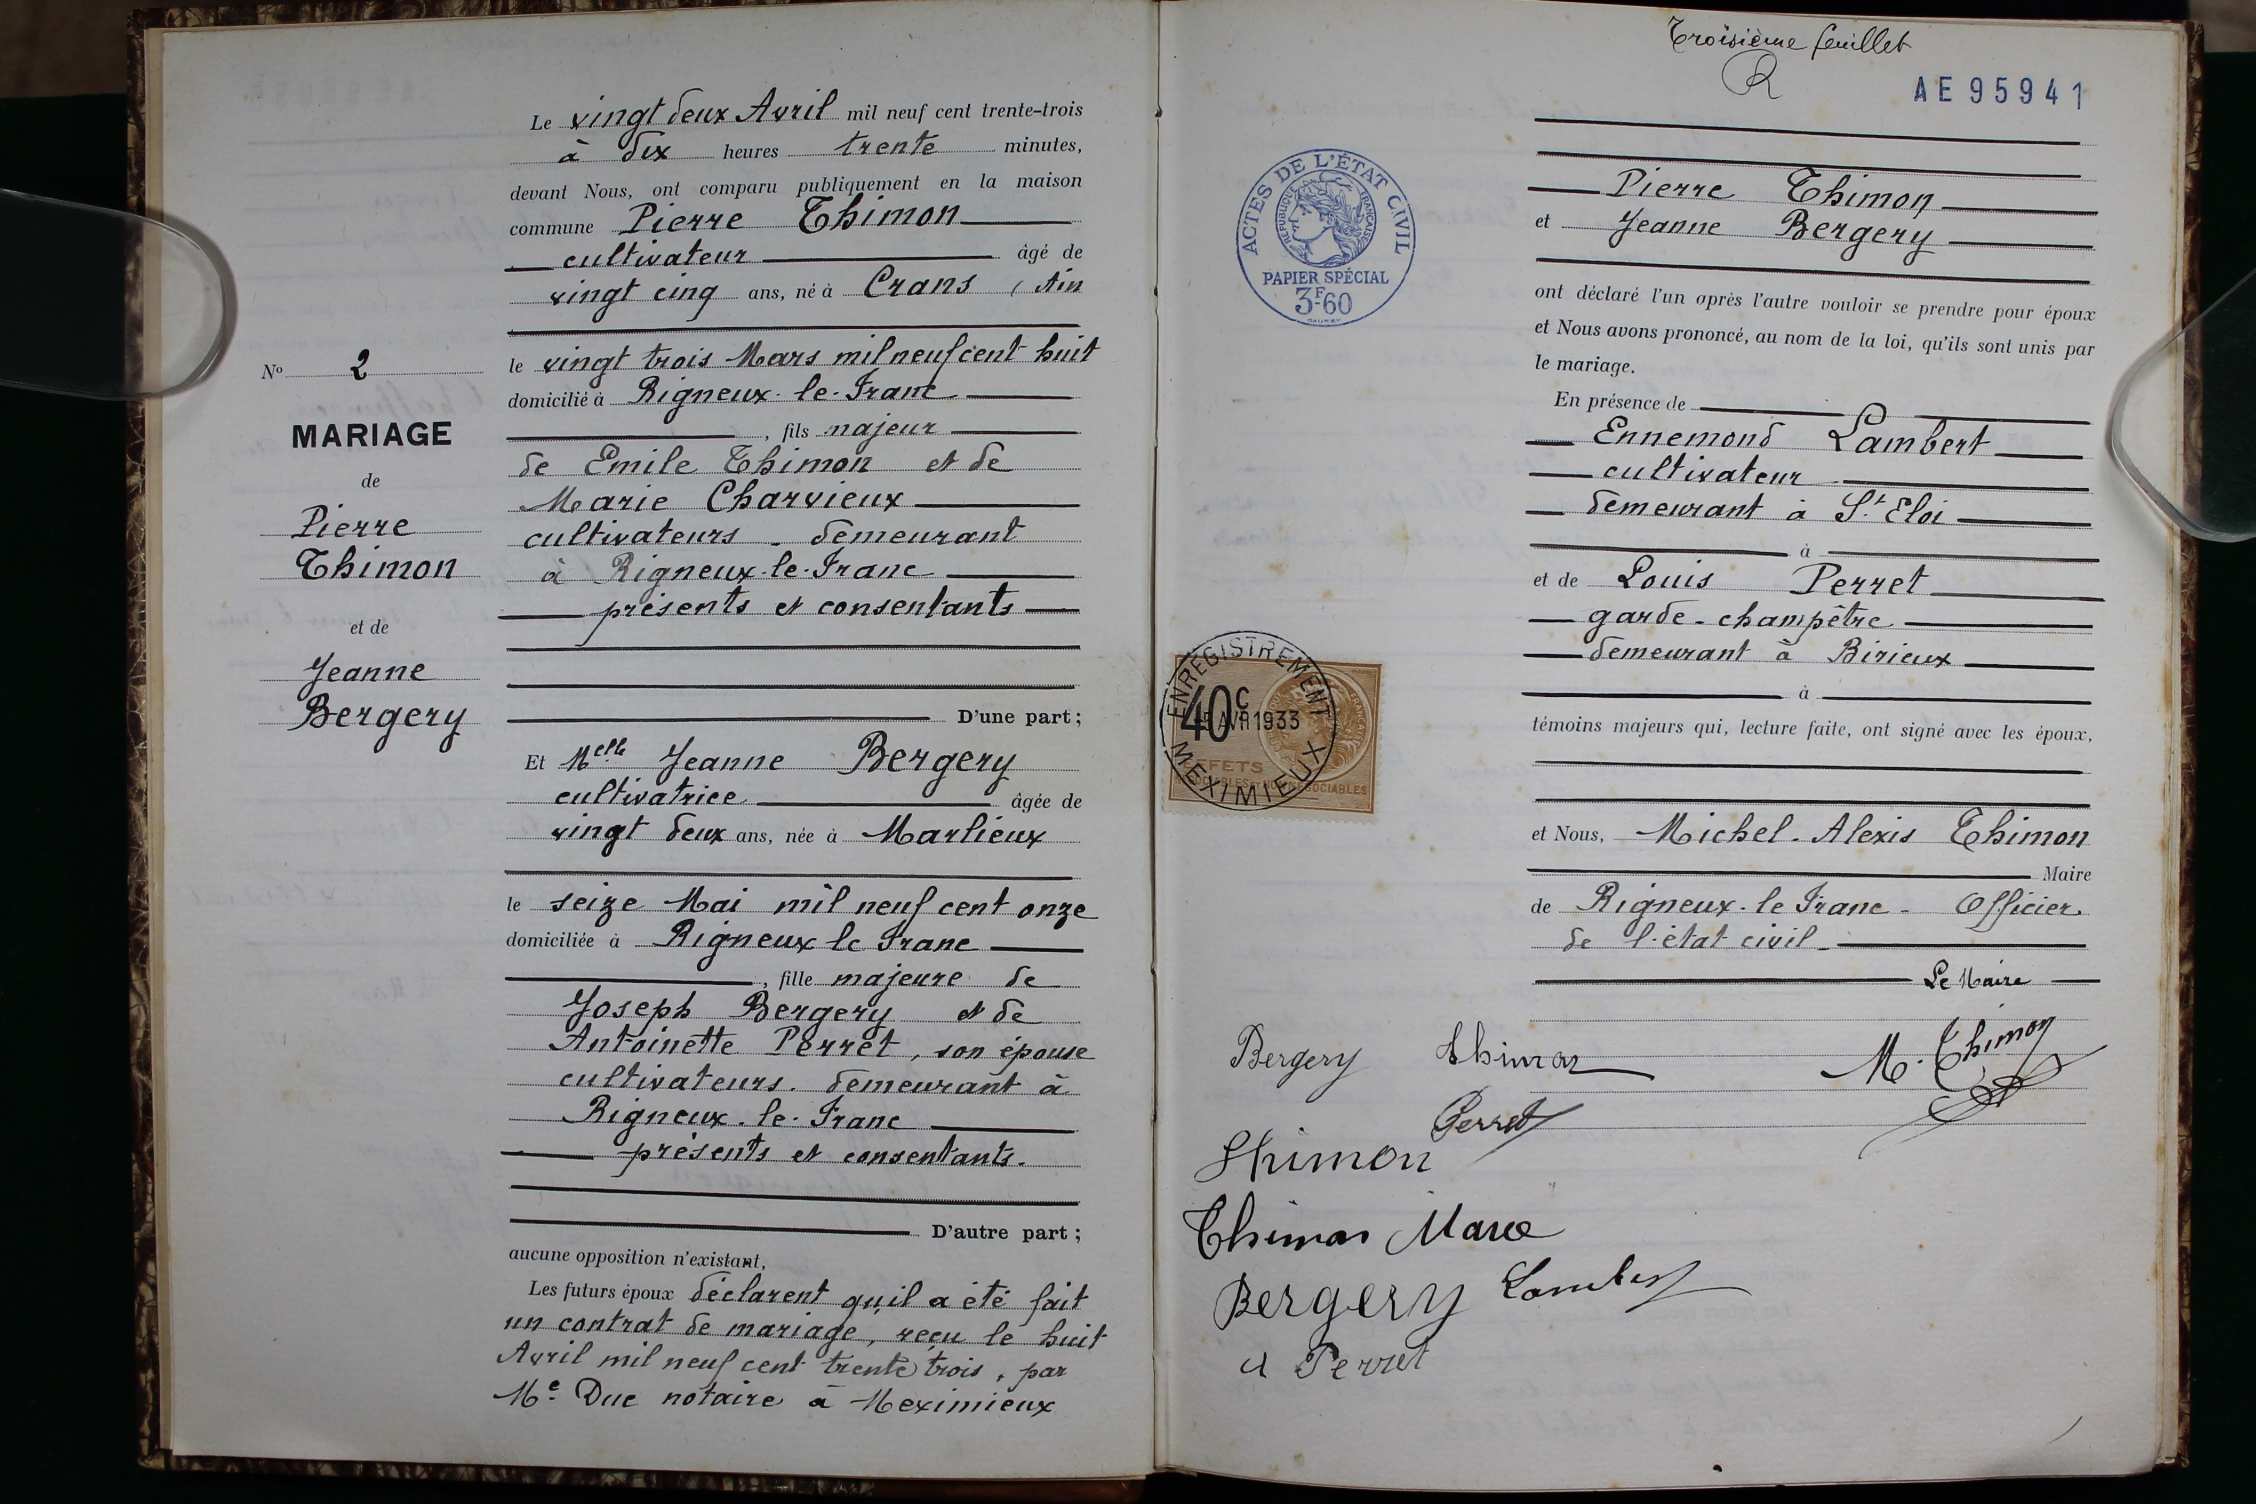 Le vingt deux Avril mil neuf cent trente-trois
à dix heures trente minutes,
devant Nous, ont comparu publiquement en la maison
commune Pierre Thimon
cultivateur âgé de
vingt cinq ans, né à Crans (Ain
le vingt trois Mars mil neuf cent huit
domicilié à Rigneux-le-Franc
, fils majeur
de Emile Thimon et de
Marie Charvieux
cultivateurs - demeurant
à Rigneux-le-Franc
présents et consentants
D'une part ;
Et Melle Jeanne Bergery
cultivatrice âgée de
vingt deux ans, née à Marlieux
le seize Mai mil neuf cent onze
domiciliée à Rigneux le Franc
, fille majeure de
Joseph Bergery et de
Antoinette Perret, son épouse
cultivateurs. demeurant à
Rigneux-le-Franc
présents et consentants.
D'autre part ;
aucune opposition n'existant,
Les futurs époux déclarent qu'il a été fait
un contrat de mariage, reçu le huit
Avril mil neuf cent trente trois, par
Me Duc notaire à Meximieux
No 2
MARIAGE
de
Pierre
Thimon
et de
Jeanne
Bergery
Troisième feuillet
AE95941
ACTES DE L'ÉTAT CIVIL
RÉPUBLIQUE FRANÇAISE
PAPIER SPÉCIAL
3F60
Pierre Thimon
et Jeanne Bergery
ont déclaré l'un après l'autre vouloir se prendre pour époux
et Nous avons prononcé, au nom de la loi, qu'ils sont unis par
le mariage.
En présence de
Ennemond Lambert
cultivateur
demeurant à St Eloi
à
et de Louis Perret
garde-champêtre
demeurant à Birieux
à
témoins majeurs qui, lecture faite, ont signé avec les époux,
et Nous, Michel-Alexis Thimon
Maire
de Rigneux-le Franc - Officier
de l'état civil
Le Maire
ENREGISTREMENT
40c
AVR 1933
MEXIMIEUX
Bergery Thimon M. Thimon
Perret
Thimon
Thimon Marie
Bergery Lambert
A Perret